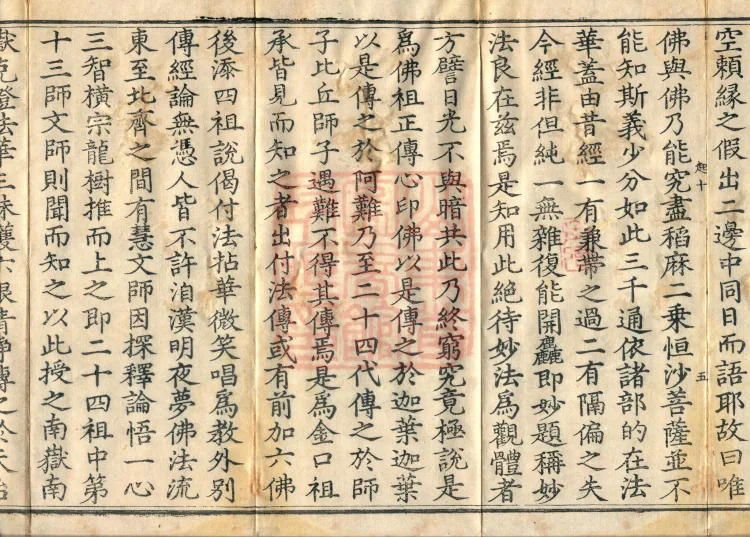 空賴緣之假出二邊中同日而語耶故曰唯
佛與佛乃能究盡稻麻二乘恒沙菩薩並不
能知斯義少分如此三千通依諸部的在法
起十
五
華蓋由昔經一有兼帶之過二有隔偏之失
今經非但純一無雜復能開麤即妙題稱妙
法良在茲焉是知用此絕待妙法爲觀體者
方譬日光不與暗共此乃終窮究竟極說是
爲佛祖正傳心印佛以是傳之於迦葉迦葉
以是傳之於阿難乃至二十四代傳之於師
子比丘師子遇難不得其傳焉是爲金口祖
承皆見而知之者出付法傳或有前加六佛
後添四祖說偈付法拈華微笑唱爲教外別
傳經論無憑人皆不許洎漢明夜夢佛法流
東至北齊之間有慧文師因探釋論悟一心
三智橫宗龍樹推而上之即二十四祖中第
十三師文師則聞而知之以此授之南嶽南
嶽克證法華三昧獲六根清淨傳之於天台